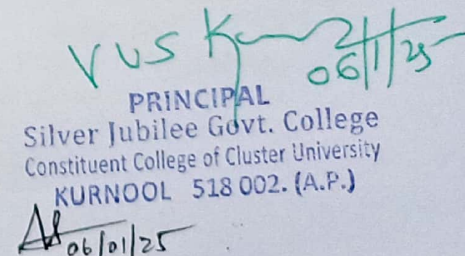 VUS K
06/1/25
PRINCIPAL
Silver Jubilee Govt. College
Constituent College of Cluster University
KURNOOL 518 002. (A.P.)
06/01/25